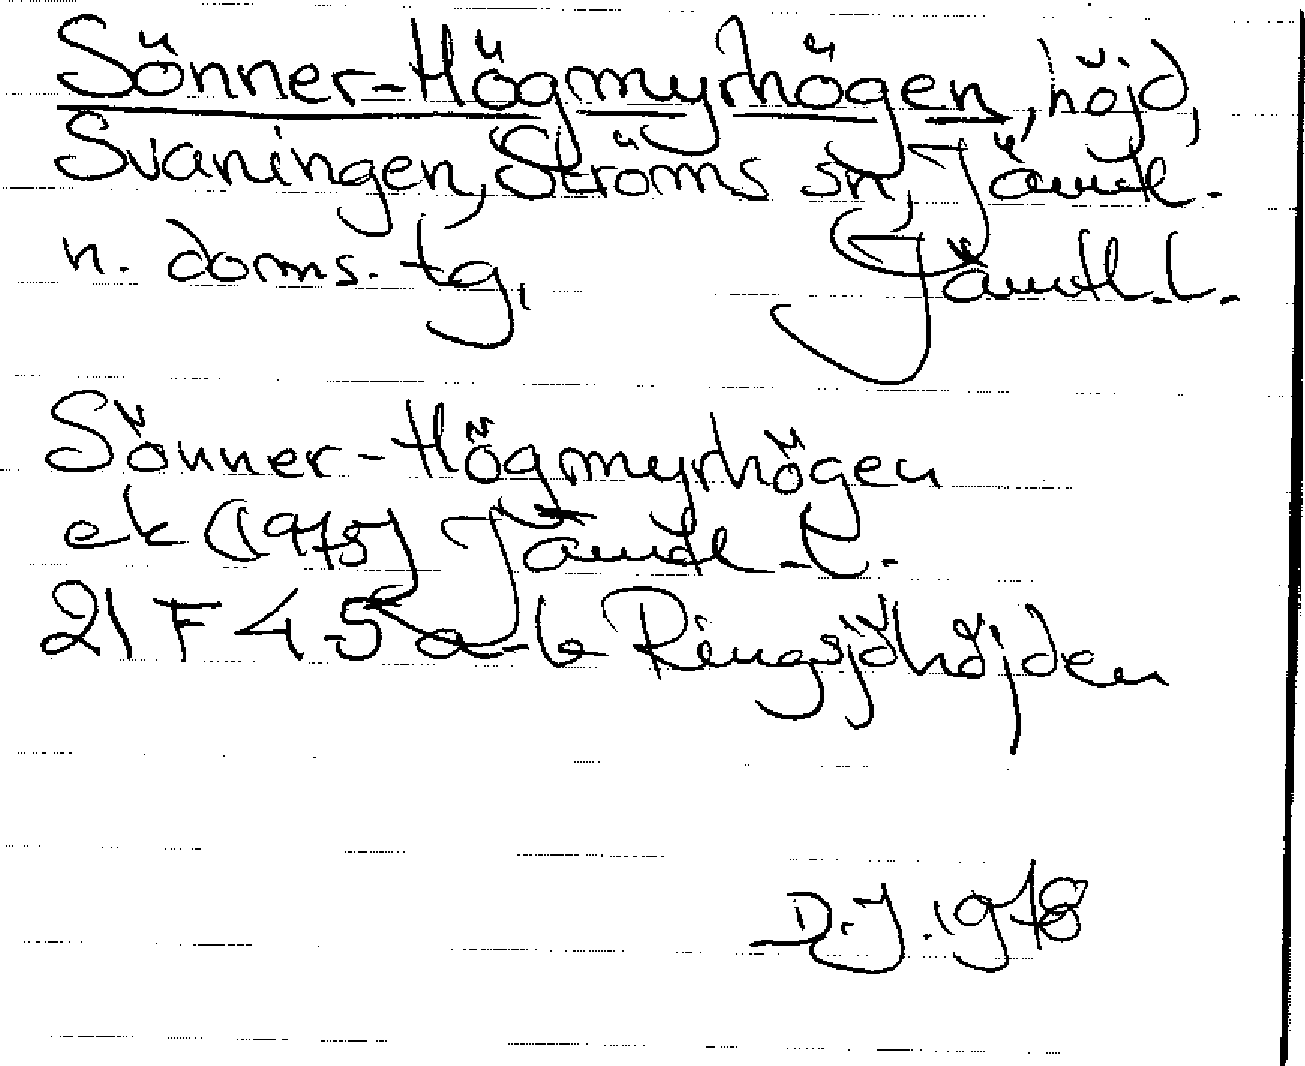 Sönner-Högmyrhögen, höjd,
Svaningen, Ströms sn, Jämtl.
n. doms. tg, Jämtl. l.
Sönner-Högmyrhögen
ek (1975) Jämtl. l.
21 F 4-5 a-b Ringsjöhöjden
D.J. 1978